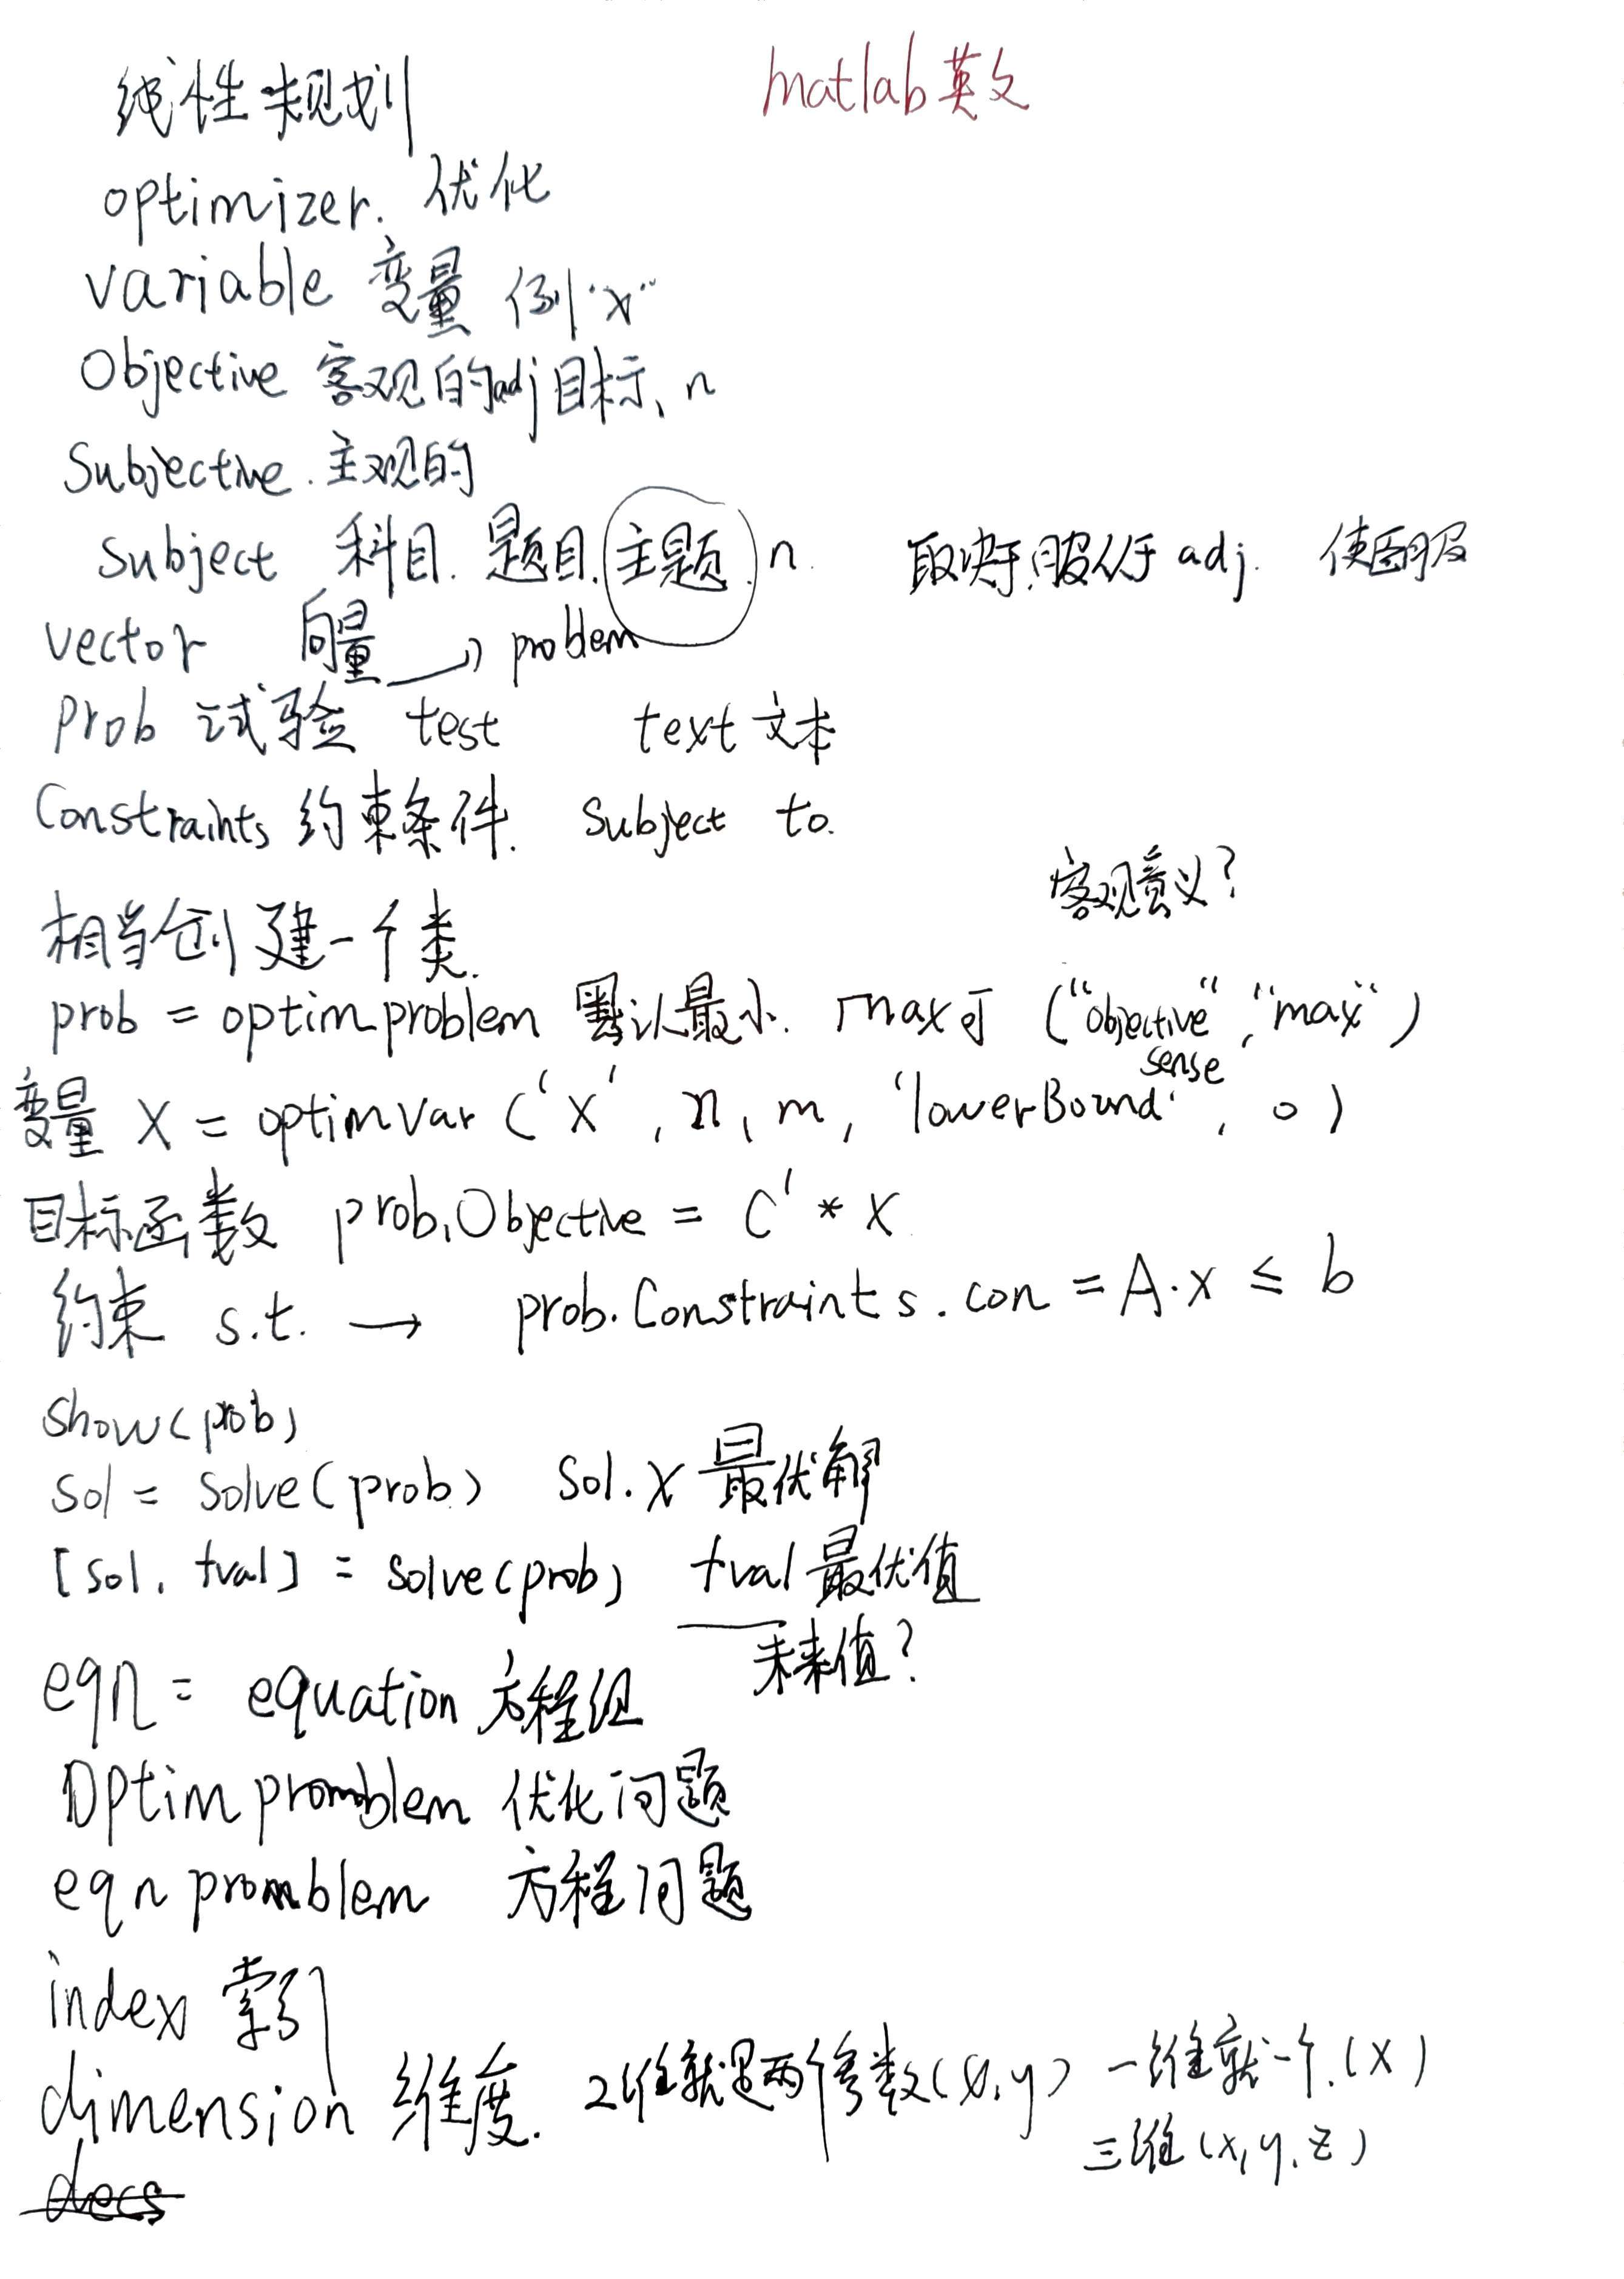 线性规划 matlab英文
optimizer. 优化
variable 变量 例"x"
Objective 客观的adj 目标、n
Subjective. 主观的
Subject 科目. 题目. 主题. n. 取决于,服从于 adj. 使臣服
vector 向量 → problem
prob 试验 test text 文本
Constraints 约束条件. Subject to.
客观意义?
相当创建一个类.
prob = optimproblem 默认最小. max可 ("objective", "max")
sense
变量 X = optimvar ('X', n, m, 'lowerBound', 0)
目标函数 prob.Objective = C' * X
约束 s.t. → prob.Constraints.con = A·x ≤ b
show(prob)
sol = solve(prob) sol.x 最优解
[sol, fval] = solve(prob) fval 最优值
未来值?
eqn = equation 方程组
Optim promblem 优化问题
eqn promblem 方程问题
index 索引
dimension 维度. 2维就是两个参数(x,y) 一维就一个.(x)
三维(x,y,z)
decs